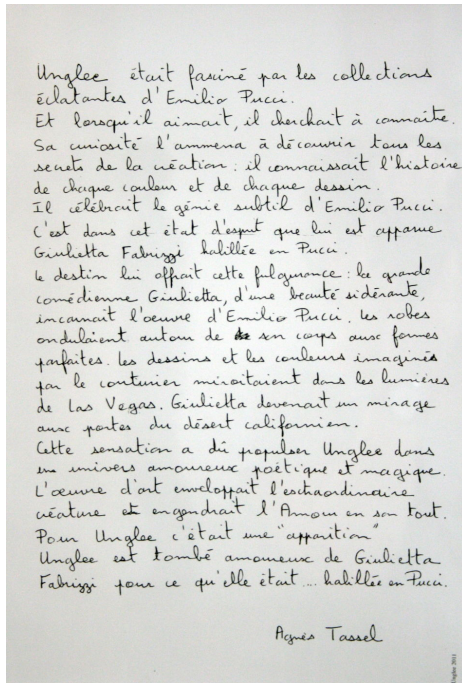 Unglee était fasciné par les collections
éclatantes d'Emilio Pucci.
Et lorsqu'il aimait, il cherchait à connaître.
Sa curiosité l'ammena à découvrir tous les
secrets de la création : il connaissait l'histoire
de chaque couleur et de chaque dessin.
Il célébrait le génie subtil d'Emilio Pucci.
C'est dans cet état d'esprit que lui est apparue
Giulietta Fabrizzi habillée en Pucci.
Le destin lui offrait cette fulgurance : la grande
comédienne Giulietta, d'une beauté sidérante,
incarnait l'oeuvre d'Emilio Pucci. Les robes
ondulaient autour de son corps aux formes
parfaites. Les dessins et les couleurs imaginés
par le couturier miroitaient dans les lumières
de Las Vegas. Giulietta devenait un mirage
aux portes du désert californien.
Cette sensation a dû populser Unglee dans
un univers amoureux poëtique et magique.
L'œuvre d'art enveloppait l'extraordinaire
créature et engendrait l'Amour en son tout.
Pour Unglee c'était une "apparition"
Unglee est tombé amoureux de Giulietta
Fabrizzi pour ce qu'elle était .... habillée en Pucci.
Agnès Tassel
Unglee 2011